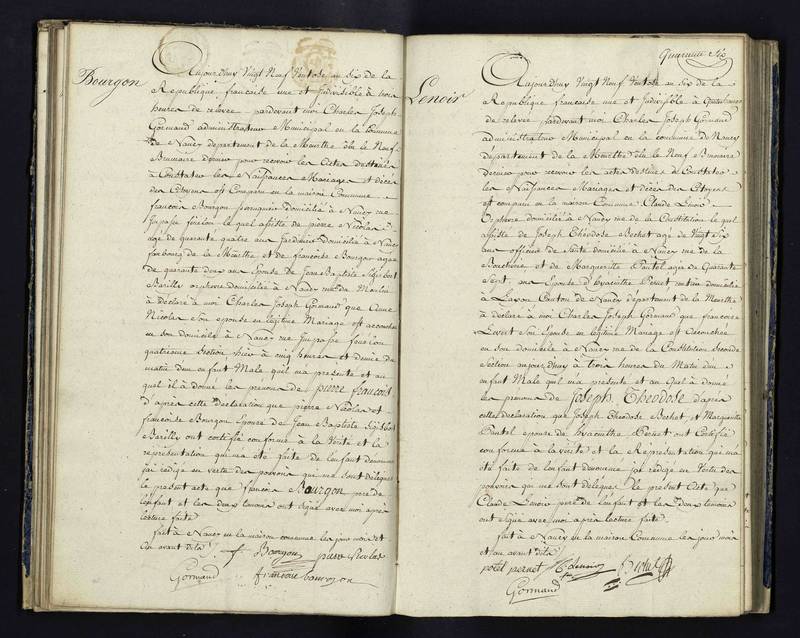 Bourgon
Aujourdhuy Vingt Neuf Ventose an Six de la
République francaise une et indivisible à trois
heures de relevée pardevant moi Charles Joseph
Gormand administrateur Municipal en la Commune
de Nancy département de la Meurthe élu le Neuf
Brumaire dernier pour recevoir les Actes destinés
à Constater les Naissances Mariages et décés
des Citoyens est Comparu en la maison Commune
francois Bourgon perruquier domicilié à Nancy rue
Impasse fénélon le quel assisté de pierre Nicolas
agé de quarante quatre ans Jardinier Domicilié à Nancy
faubourg de la Meurthe et de francoise Bourgon agée
de quarante deux ans Epouse de Jean Baptiste
Barilly orphevre domicilié à Nancy rue de
à déclaré à moi Charles Joseph Gormand que Anne
Nicolas son epouse en légitime Mariage est accouchée
en son domicile à Nancy rue Impasse fénélon
quatrieme Section hier à cinq heures et demie du
matin d'un enfant Male quil ma présenté et au
quel il a donné les prenoms de pierre francois
d'après cette déclaration que pierre Nicolas et
francoise Bourgon Epouse de Jean Baptiste
Barilly ont certifié conforme à la Vérité et la
représentation qui m'a été faite de l'enfant denommé
jai rédigé en vertu des pouvoirs qui me sont délégués
le présent acte que francois Bourgon pere de
l'enfant et les deux témoins ont signé avec moi après
lecture faite
fait à Nancy en la maison commune les jour mois et
an avant dits
f Bourgon pierre Nicolas
Gormand francoise bourgon
Quarante Six
Lenoir
Aujourdhuy Vingt Neuf Ventose an Six de la
République francaise une et Indivisible à quatre heures
de relevée pardevant moi Charles Joseph Gormand
administrateur Municipal en la commune de Nancy
département de la Meurthe élu le Neuf Brumaire
dernier pour recevoir les actes destinés à Constater
les Naissances Mariages et décés des Citoyens
est comparu en la maison Commune Claude Lenoir
Orphevre domicilié à Nancy rue de la Constitution le quel
assisté de Joseph Théodose Bechet agé de Vingt Six
ans officier de Santé domicilié à Nancy rue de la
Boucherie et de Marguerite Pautel agée de Quarante
Sept ans Epouse d'hyacinthe Pernet rentier domicilié
à Laxou Canton de Nancy département de la Meurthe
à déclaré à moi Charles Joseph Gormand que francoise
son Epouse en légitime Mariage est Accouchée
en son domicile à Nancy rue de la Constitution Seconde
Section aujourdhuy à trois heures du Matin d'un
enfant Male quil ma présenté et au Quel à donné
les prenoms de Joseph Théodose d'après
cette déclaration que Joseph Théodose Bechet et Marguerite
Pautel epouse de hyacinthe Pernet ont Certifié
conforme à la vérité et la Représentation qui ma
été faite de l'enfant denommé jai rédigé en Vertu des
pouvoirs qui me sont délégués le présent Acte que
Claude Lenoir pere de l'enfant et les deux témoins
ont signé avec moi après lecture faite
fait à Nancy en la maison Commune les jour mois
et an avant dits
potel pernet C Lenoir Bechet
Gormand